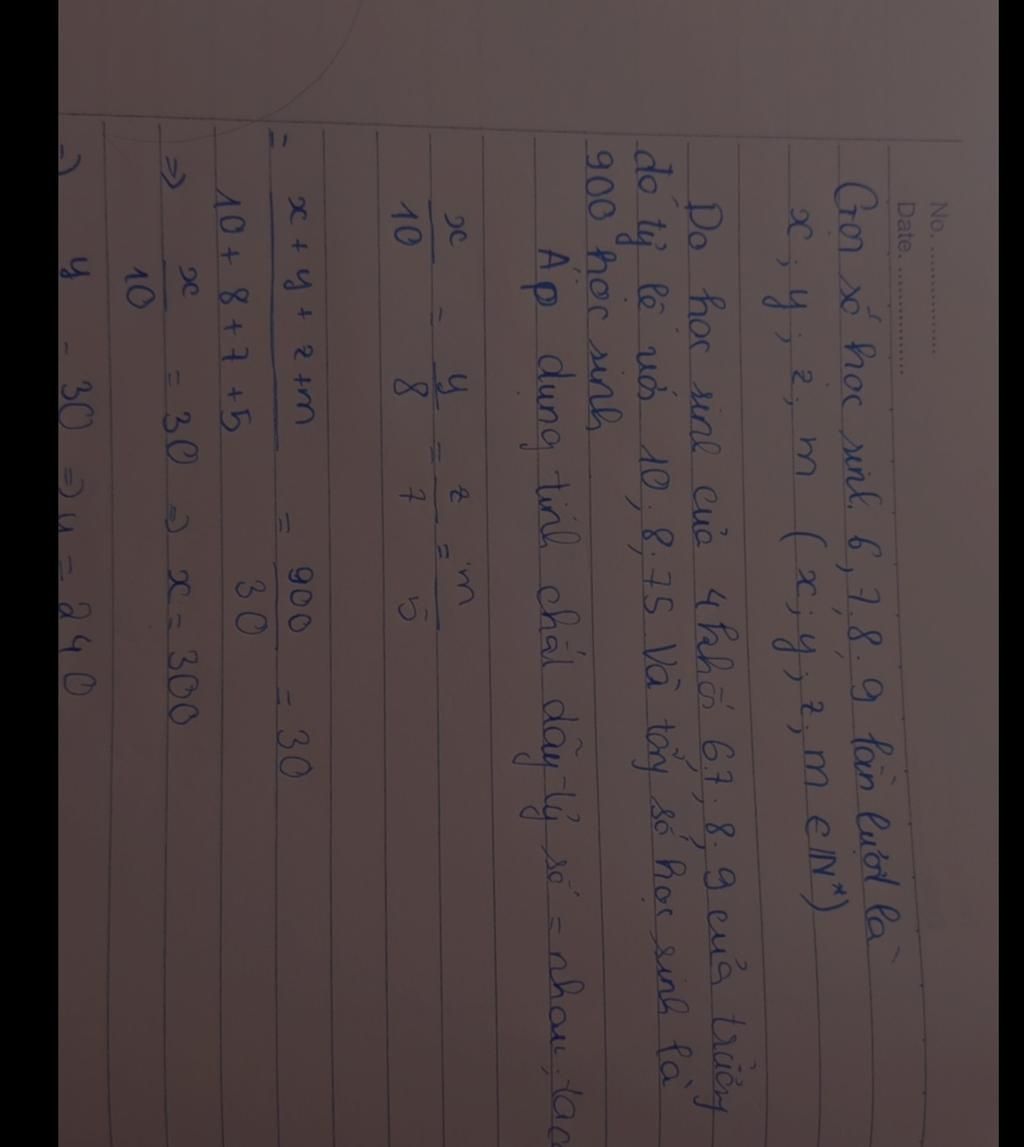 No. ...............
Date. ...............
Gọi số học sinh 6, 7, 8, 9 lần lượt là
x ; y ; z ; m ( x ; y ; z ; m ∈ IN*)
Do học sinh của 4 khối 6, 7, 8, 9 của trường
đó tỷ lệ với 10, 8, 7, 5 Và tổng số học sinh là
900 học sinh
Áp dụng tính chất dãy tỷ số = nhau, tac
x/10 = y/8 = z/7 = m/5
= x + y + z + m / 10 + 8 + 7 + 5 = 900/30 = 30
=> x/10 = 30 => x = 300
=> y = 30 => y = 240